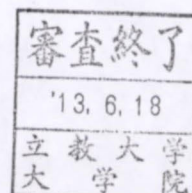 審査終了
'13.6.18
立教大学
大学院